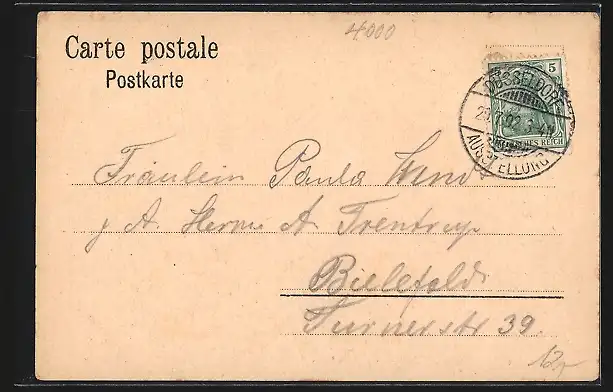 4000
Carte postale
Postkarte
5
DÜSSELDORF
AUSSTELLUNG
DEUTSCHES REICH
Fräulein Paula Wend
p A. Herrn A Trentrup
Bielefeld
Turnerstr 39.
12,-